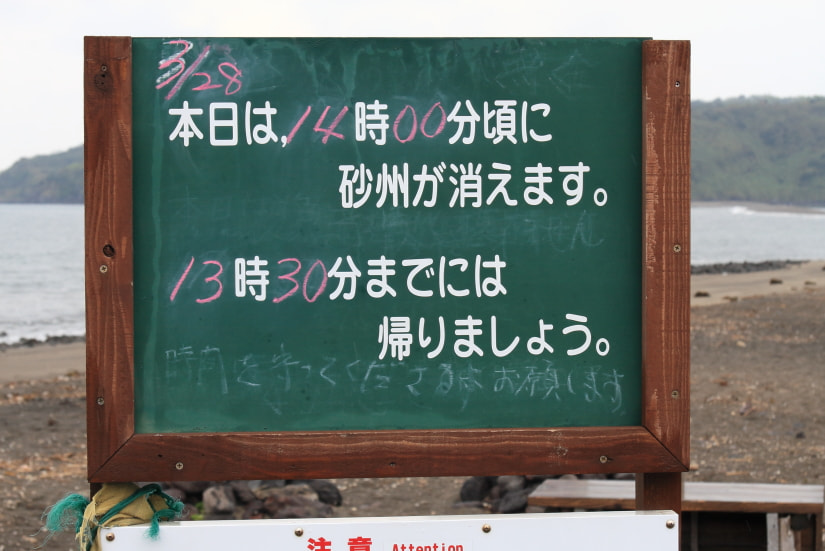 3/28
本日は,14時00分頃に
砂州が消えます。
13時30分までには
帰りましょう。
時間を守ってください お願します
注意 Attention